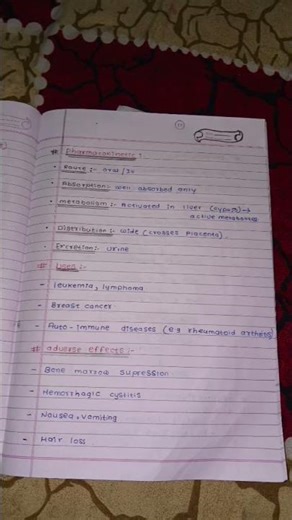 # Pharmacokinetics :-
• Route :- oral / IV
• Absorption:- well absorbed orally
• metabolism :- Activated in liver (CYP450) →
active metabolites
• Distribution :- wide (crosses placenta)
• Excretion:- urine
# Uses :-
- leukemia, lymphoma
- Breast cancer
- Auto-immune diseases (e.g rheumatoid arthritis)
# adverse effects :-
- Bone marrow supression
- Hemorrhagic cystitis
- Nausea, vomiting
- Hair loss